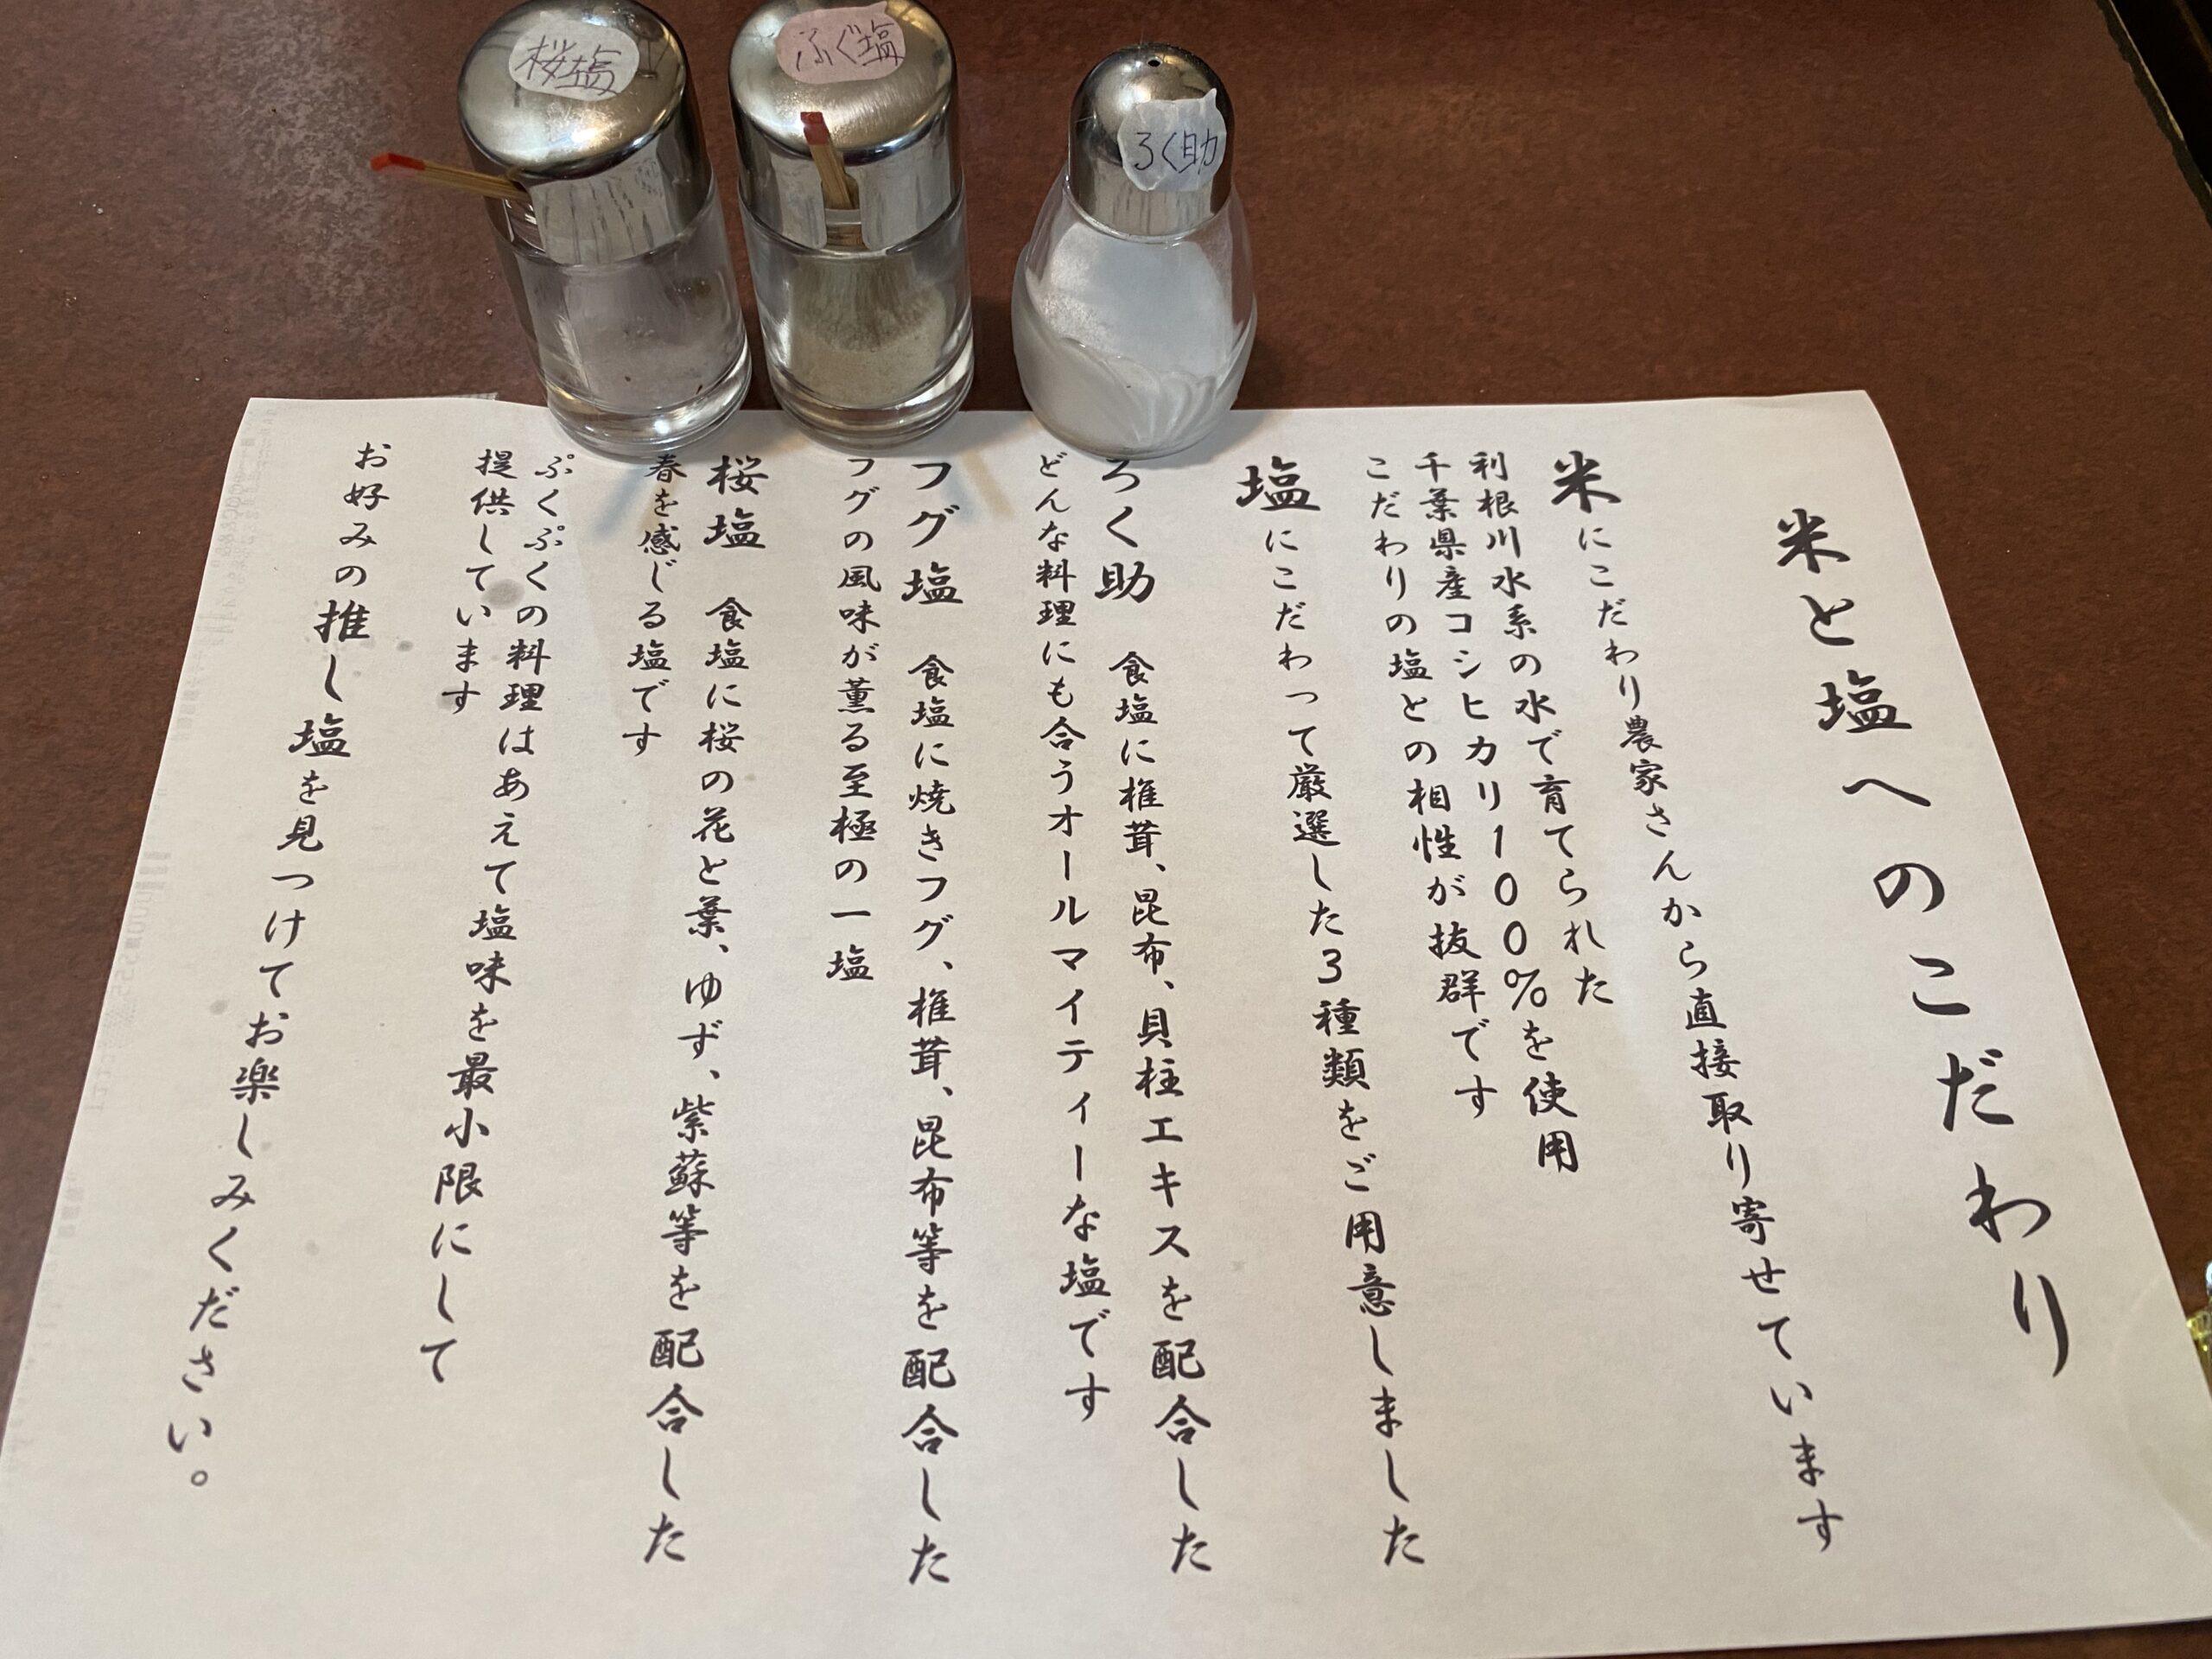 桜塩
ふぐ塩
ろく助
米と塩へのこだわり
米にこだわり農家さんから直接取り寄せています
利根川水系の水で育てられた
千葉県産コシヒカリ100%を使用
こだわりの塩との相性が抜群です
塩にこだわって厳選した3種類をご用意しました
ろく助 食塩に椎茸、昆布、貝柱エキスを配合した
どんな料理にも合うオールマイティーな塩です
フグ塩 食塩に焼きフグ、椎茸、昆布等を配合した
フグの風味が薫る至極の一塩
桜塩 食塩に桜の花と葉、ゆず、紫蘇等を配合した
春を感じる塩です
ぷくぷくの料理はあえて塩味を最小限にして
提供しています
お好みの推し塩を見つけてお楽しみください。